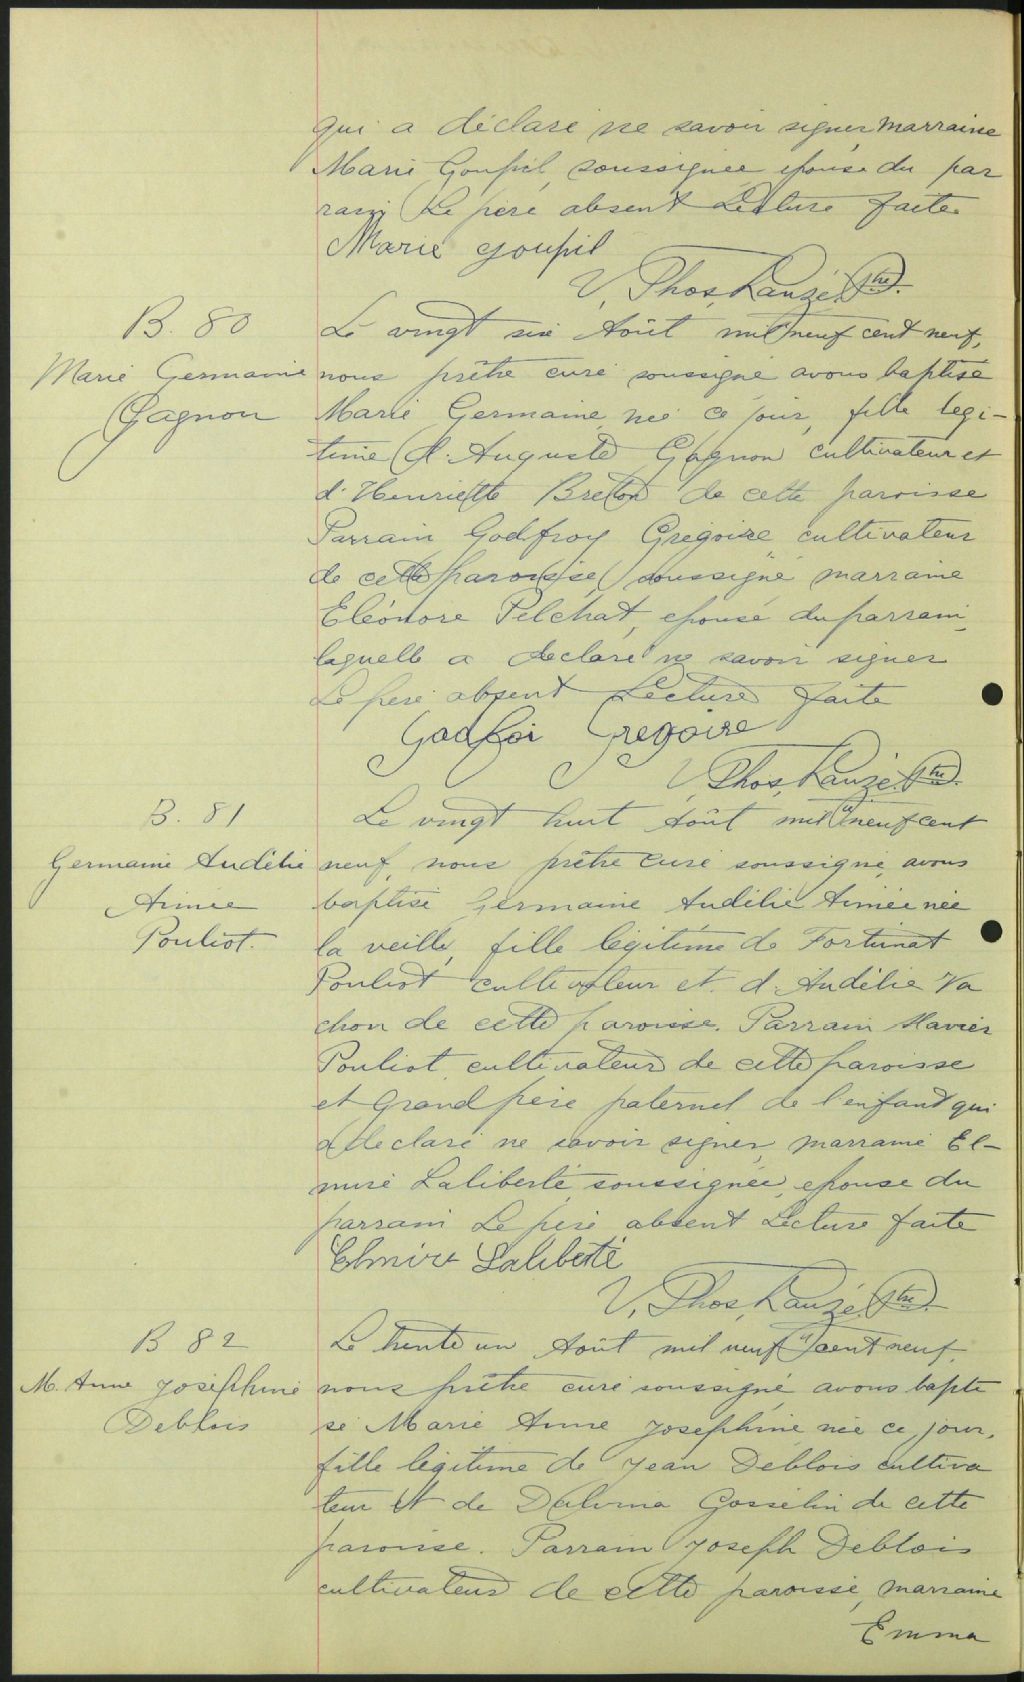 qui a déclaré ne savoir signer, marraine
Marie Goupil, soussignée, épouse du par
rain Le père absent Lecture faite.
Marie Goupil
V. Thos, Lauzé, Ptre.
B. 80
Marie Germaine
Gagnon
Le vingt six Août mil neuf cent neuf,
nous prêtre curé soussigné avons baptisé
Marie Germaine, née ce jour, fille légi-
time d'Auguste Gagnon cultivateur et
d'Henriette Breton de cette paroisse
Parrain Godfroy Grégoire cultivateur
de cette paroisse, soussigné marraine
Eléonore Pelchat, épouse du parrain,
laquelle a déclaré ne savoir signer
Le père absent Lecture faite
Godfroi Gregoire
V. Thos, Lauzé, Ptre.
B. 81
Germaine Audélie
Aimée
Pouliot.
Le vingt huit Août mil neuf cent
neuf, nous prêtre curé soussigné, avons
baptisé Germaine Audélie Aimée née
la veille, fille légitime de Fortunat
Pouliot cultivateur et d'Audélie Va
chon de cette paroisse. Parrain Xavier
Pouliot cultivateur de cette paroisse
et Grand père paternel de l'enfant qui
a déclaré ne savoir signer, marraine El-
mire Laliberté, soussignée, épouse du
parrain Le père absent Lecture faite
Elmire Laliberté
V. Thos, Lauzé, Ptre.
B 82
M. Anne Joséphine
Deblois
Le trente un Août mil neuf cent neuf,
nous prêtre curé soussigné avons bapti
sé Marie Anne Joséphine née ce jour,
fille légitime de Jean Deblois cultiva
teur et de Dalvina Gosselin de cette
paroisse. Parrain Joseph Deblois
cultivateur de cette paroisse, marraine
Emma